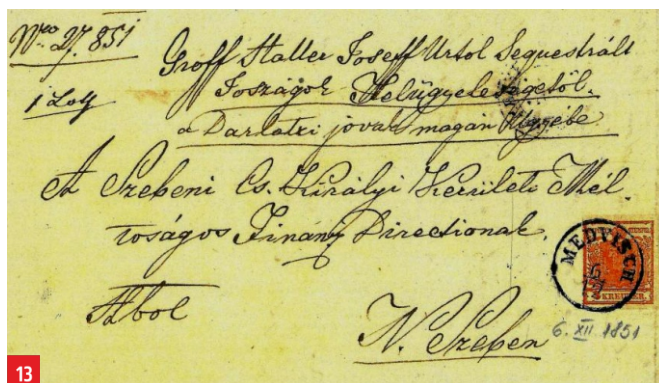 Nro 27. 851
1 Loth
Groff Haller Joseff Urtol Sequestrált
Joszágok Felügyelőségetől.
a Darlatzi jovak magán Ügyébe
A Szebeni Cs. Királyi Kerületi Mél-
toságos Finánz Directionak.
Abol
N. Szeben
MEDVISCH
6
12
KREUZER
6. XII 1851
13